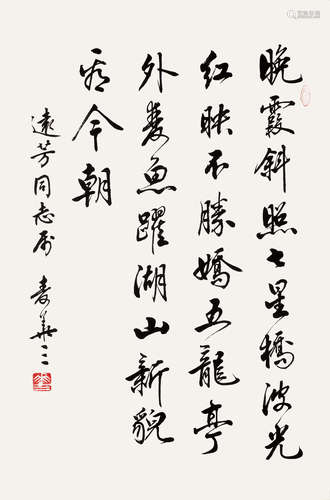 晚霞斜照七星橋波光
紅映不勝嬌五龍亭
外麦魚躍湖山新貌
看今朝
遠芳同志属 麦華三